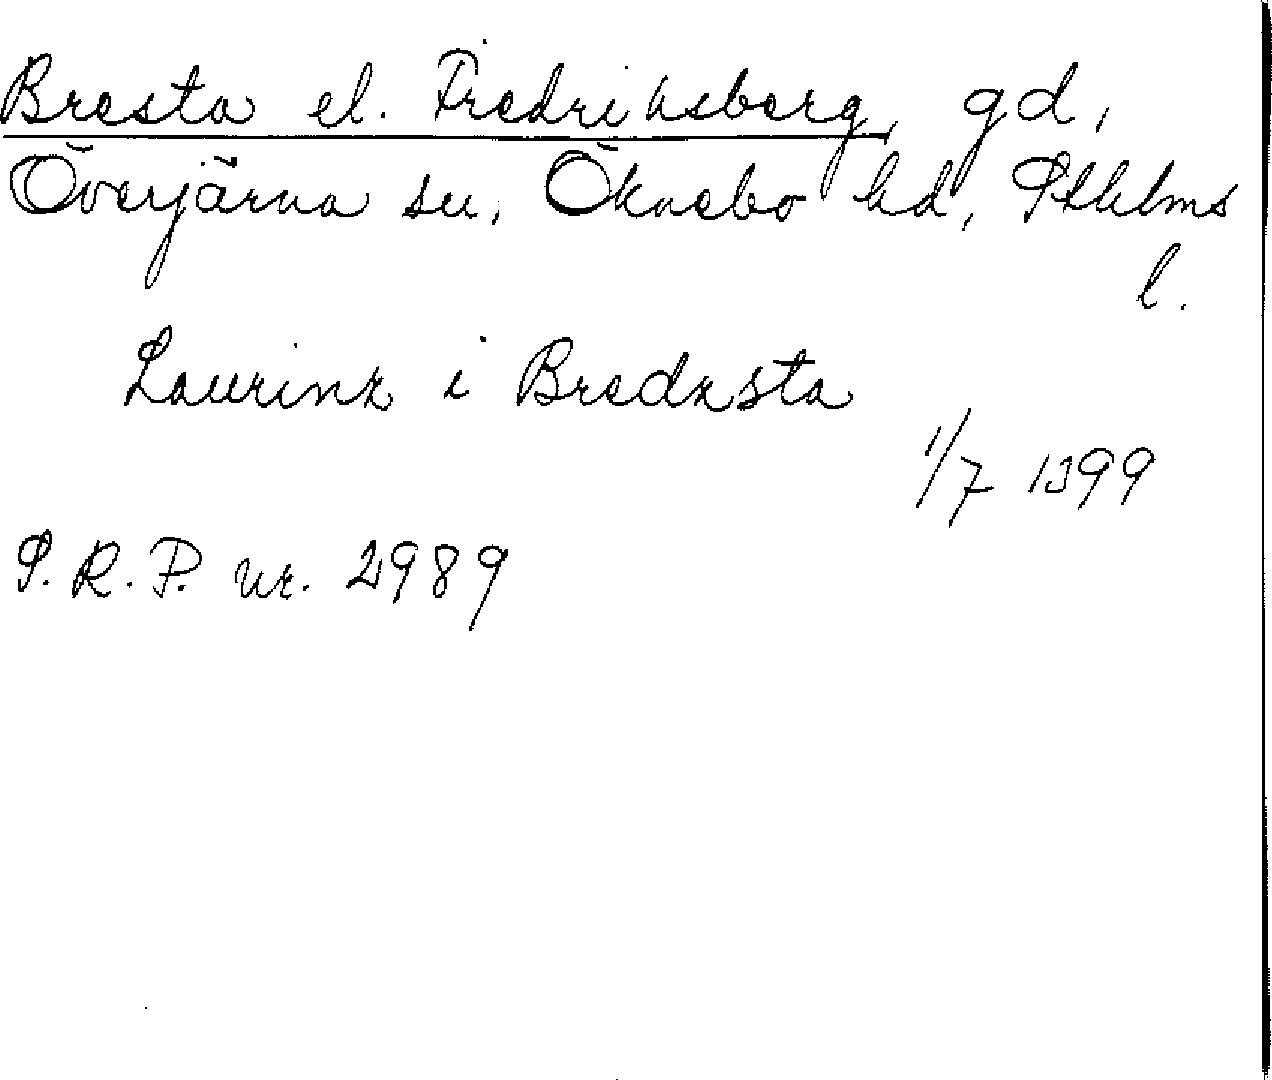 Bresta el. Fredriksberg, gd,
Överjärna sn, Öknebo hd, Sthlms
l.
Laurinz i Bredzsta
1/7 1399
S.R.P. nr. 2989